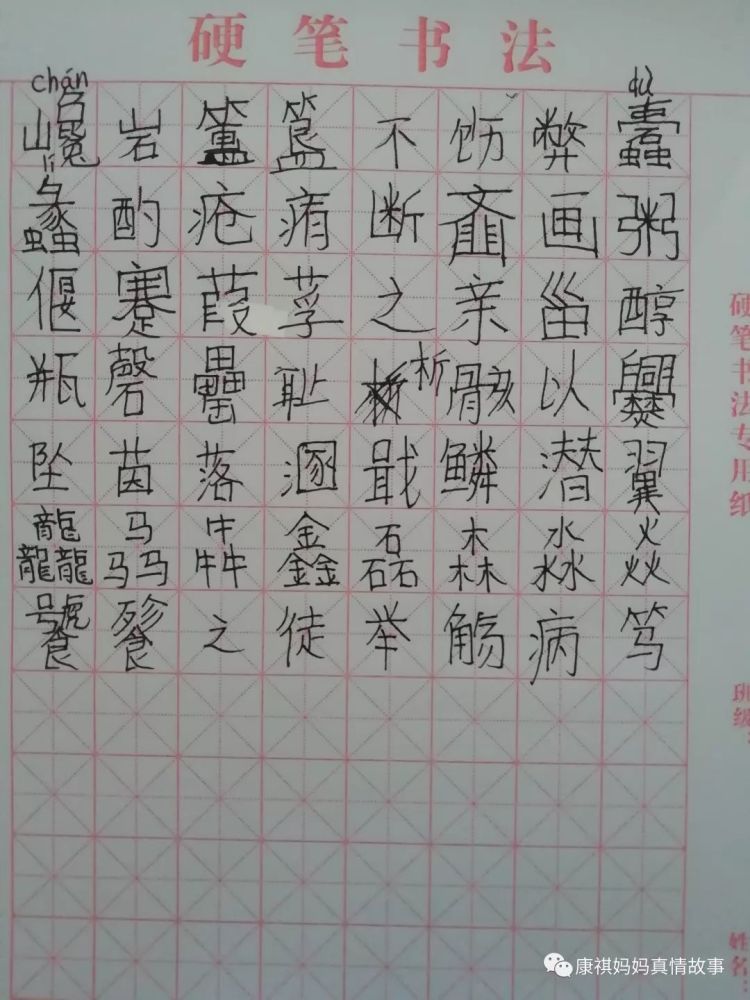 硬笔书法
chán dù
巉岩簠簋不饬弊蠹
lí
蠡酌疮痏断齑画粥
偃蹇葭莩之亲甾醇
瓶罄罍耻析骸以爨
坠茵落溷戢鳞潜翼
龘骉犇鑫磊森淼焱
饕餮之徒举觞病笃
硬笔书法专用纸
班级:
姓名:
康祺妈妈真情故事